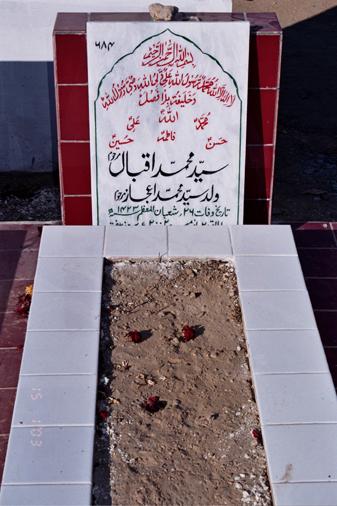 ۶۸۴
بسم اللہ الرحمن الرحیم
لا الہ الا اللہ محمد رسول اللہ علی ولی اللہ وصی رسول اللہ
و خلیفتہ بلا فصل
اللہ
محمد علی
فاطمہ
حسن حسین
سید محمد اقبال مرحوم
ولد سید محمد اعجاز مرحوم
تاریخ وفات ۲۶ شعبان المعظم ۱۴۲۳ھ
15 1'03